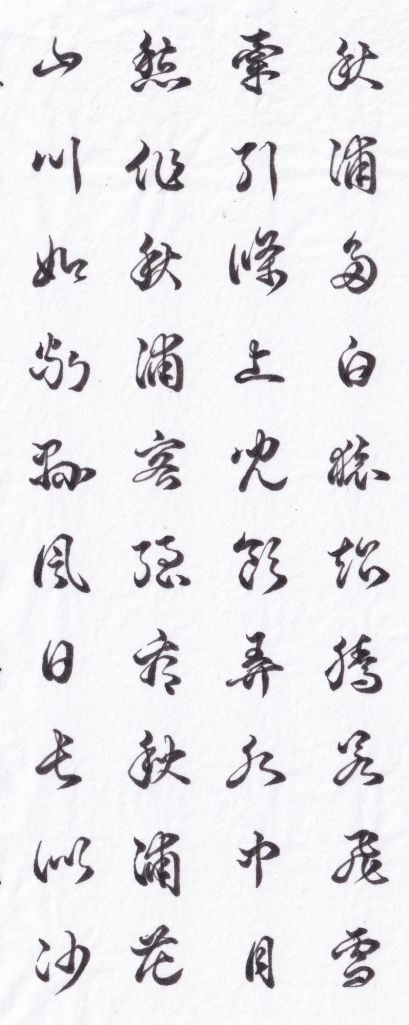 秋浦多白猿超騰若飛雪
牽引條上兒飲弄水中月
愁作秋浦客强看秋浦花
山川如剡縣風日長似沙